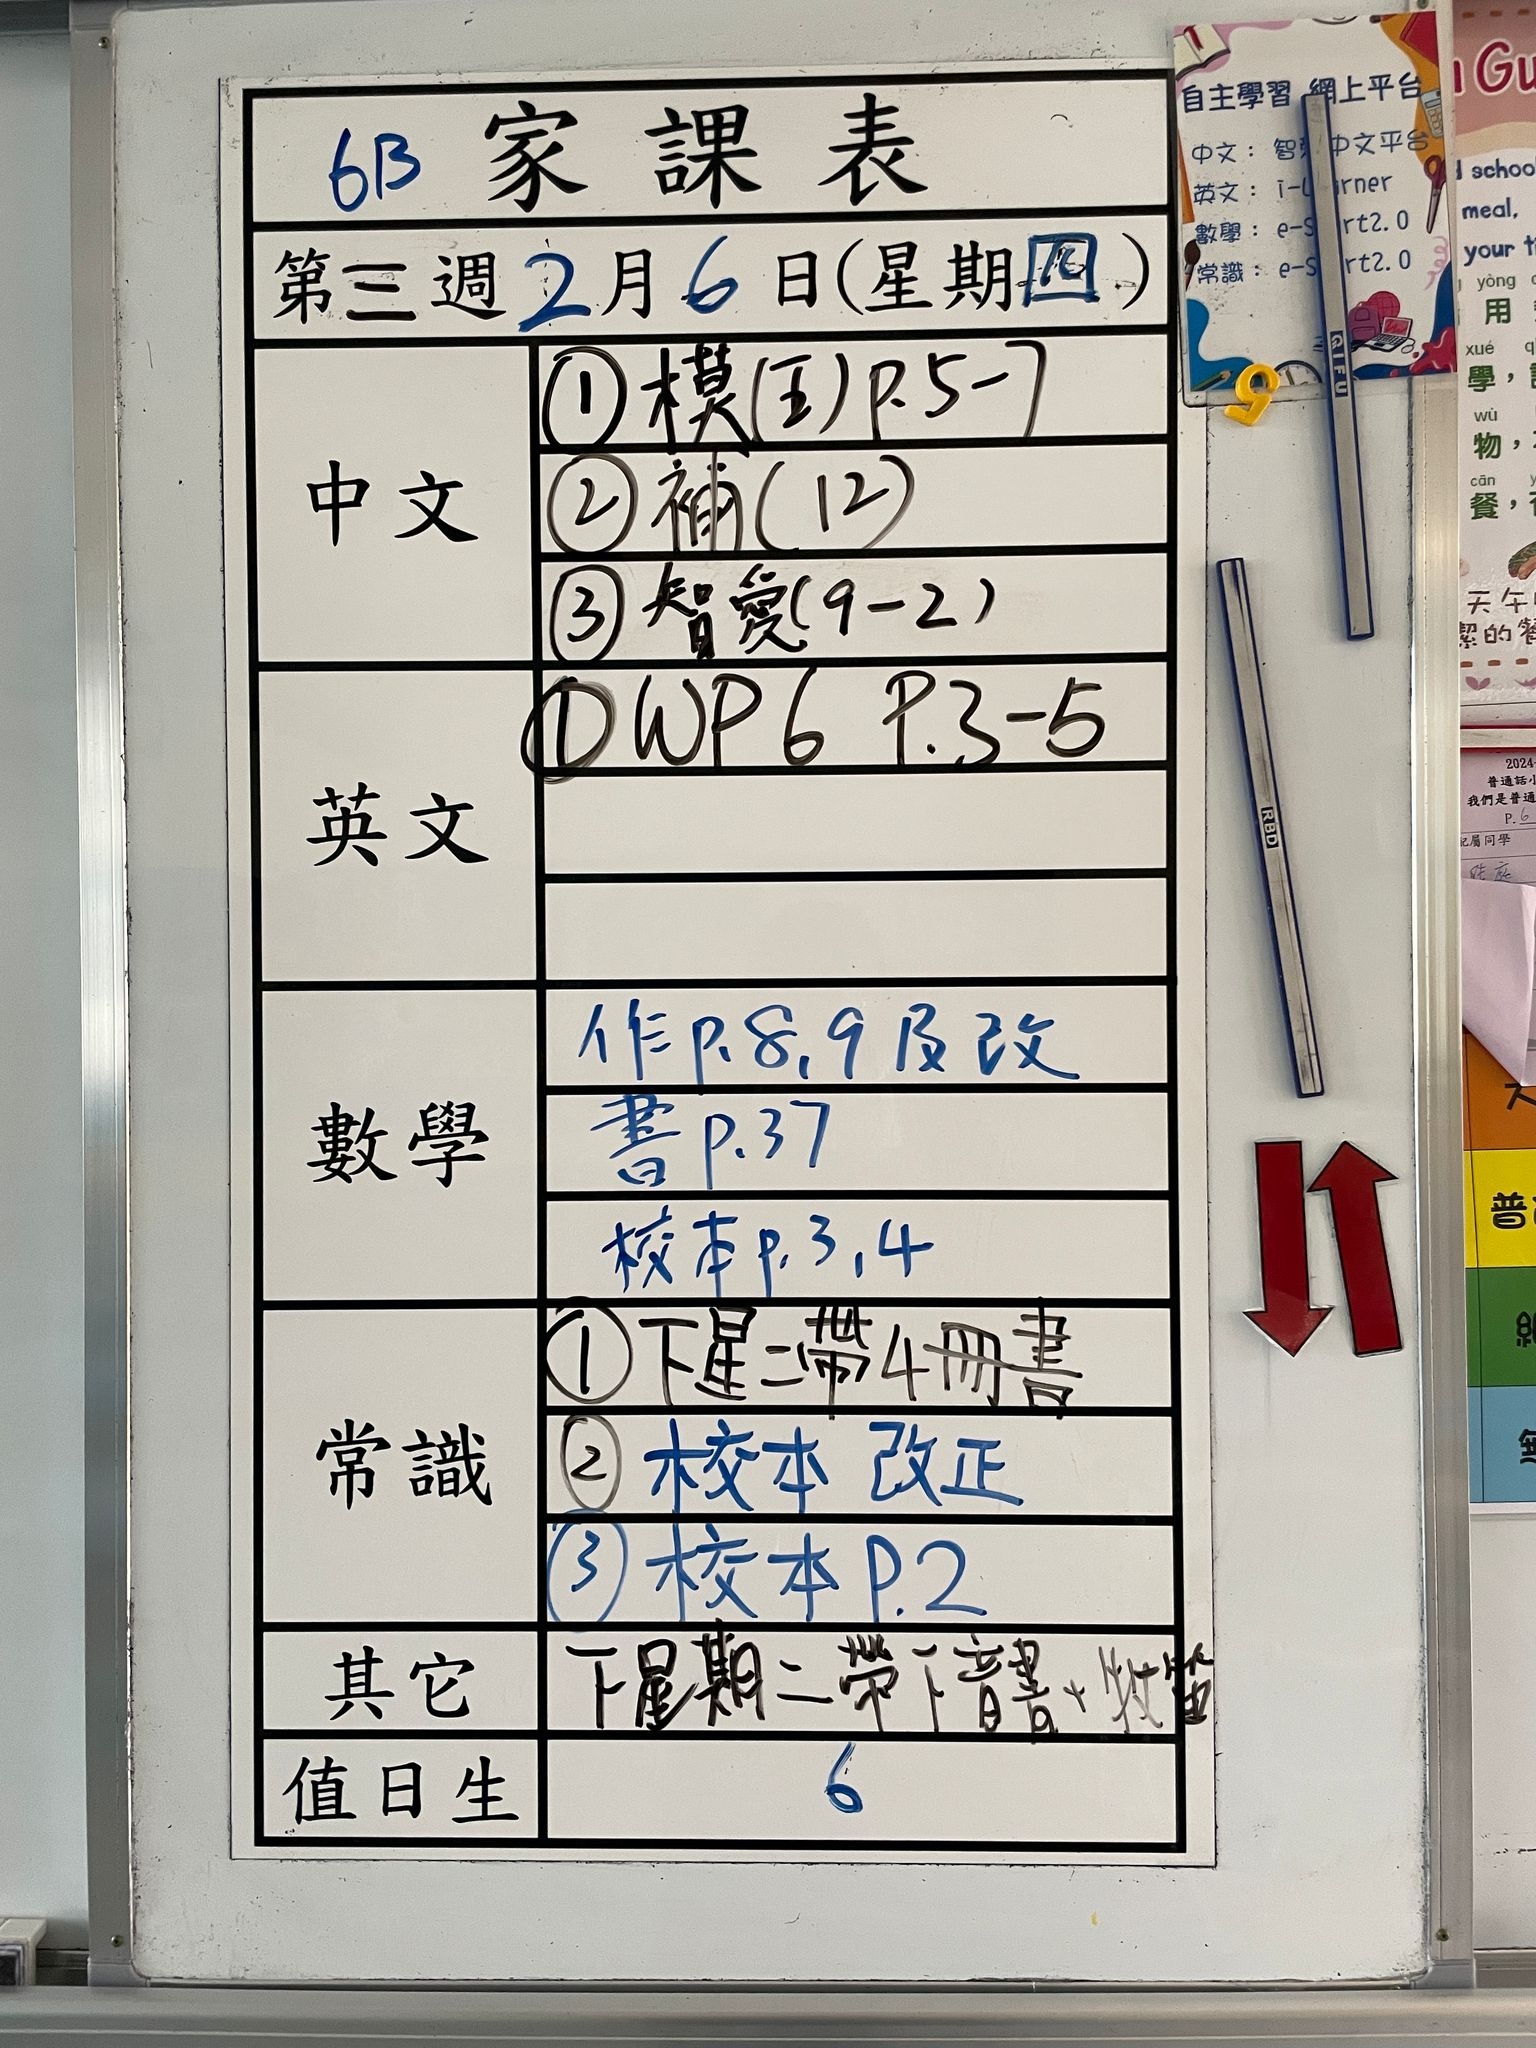 6B 家課表
第三週2月6日(星期四)
中文
①模(五)p.5-7
②補(12)
③智愛(9-2)
英文
①WP6 P.3-5
數學
作p.8,9及改
書p.37
校本p.3,4
常識
①下星二帶4冊書
②校本 改正
③校本P.2
其它
下星期二帶下音書+牧笛
值日生
6
自主學習 網上平台
中文：智愛中文平台
英文：i-Learner
數學：e-Smart2.0
常識：e-Smart2.0
9
QIFU
RBD
Gu
schoo
meal,
your
yòng
用
xué
學，
wù
物，
cān
餐，
天午
潔的餐
2024-
普通話小
我們是普通
P.6
配屬同學
普